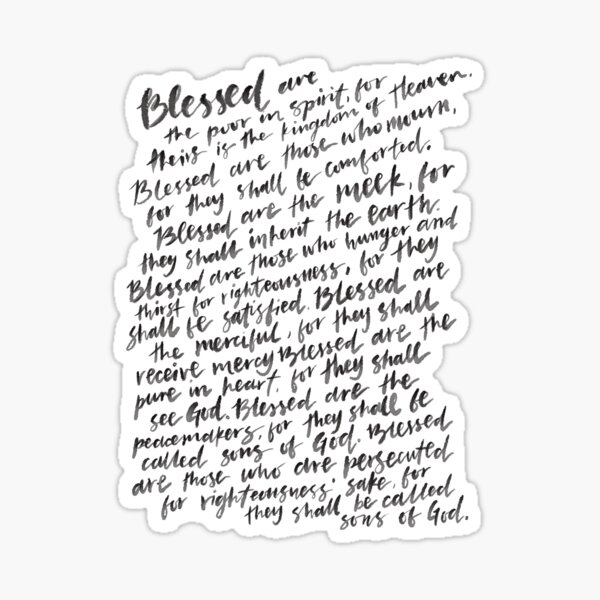 Blessed are
the poor in spirit, for
theirs is the kingdom of Heaven.
Blessed are those who mourn,
for they shall be comforted.
Blessed are the meek, for
they shall inherit the earth.
Blessed are those who hunger and
thirst for righteousness, for they
shall be satisfied. Blessed are
the merciful, for they shall
receive mercy Blessed are the
pure in heart, for they shall
see God. Blessed are the
peacemakers, for they shall be
called sons of God. Blessed
are those who are persecuted
for righteousness' sake, for
they shall be called
sons of God.